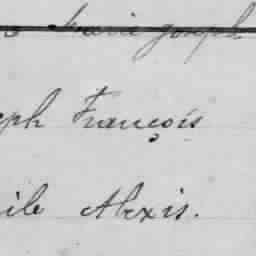 Marie Joseph
eph François
ile Alexis.